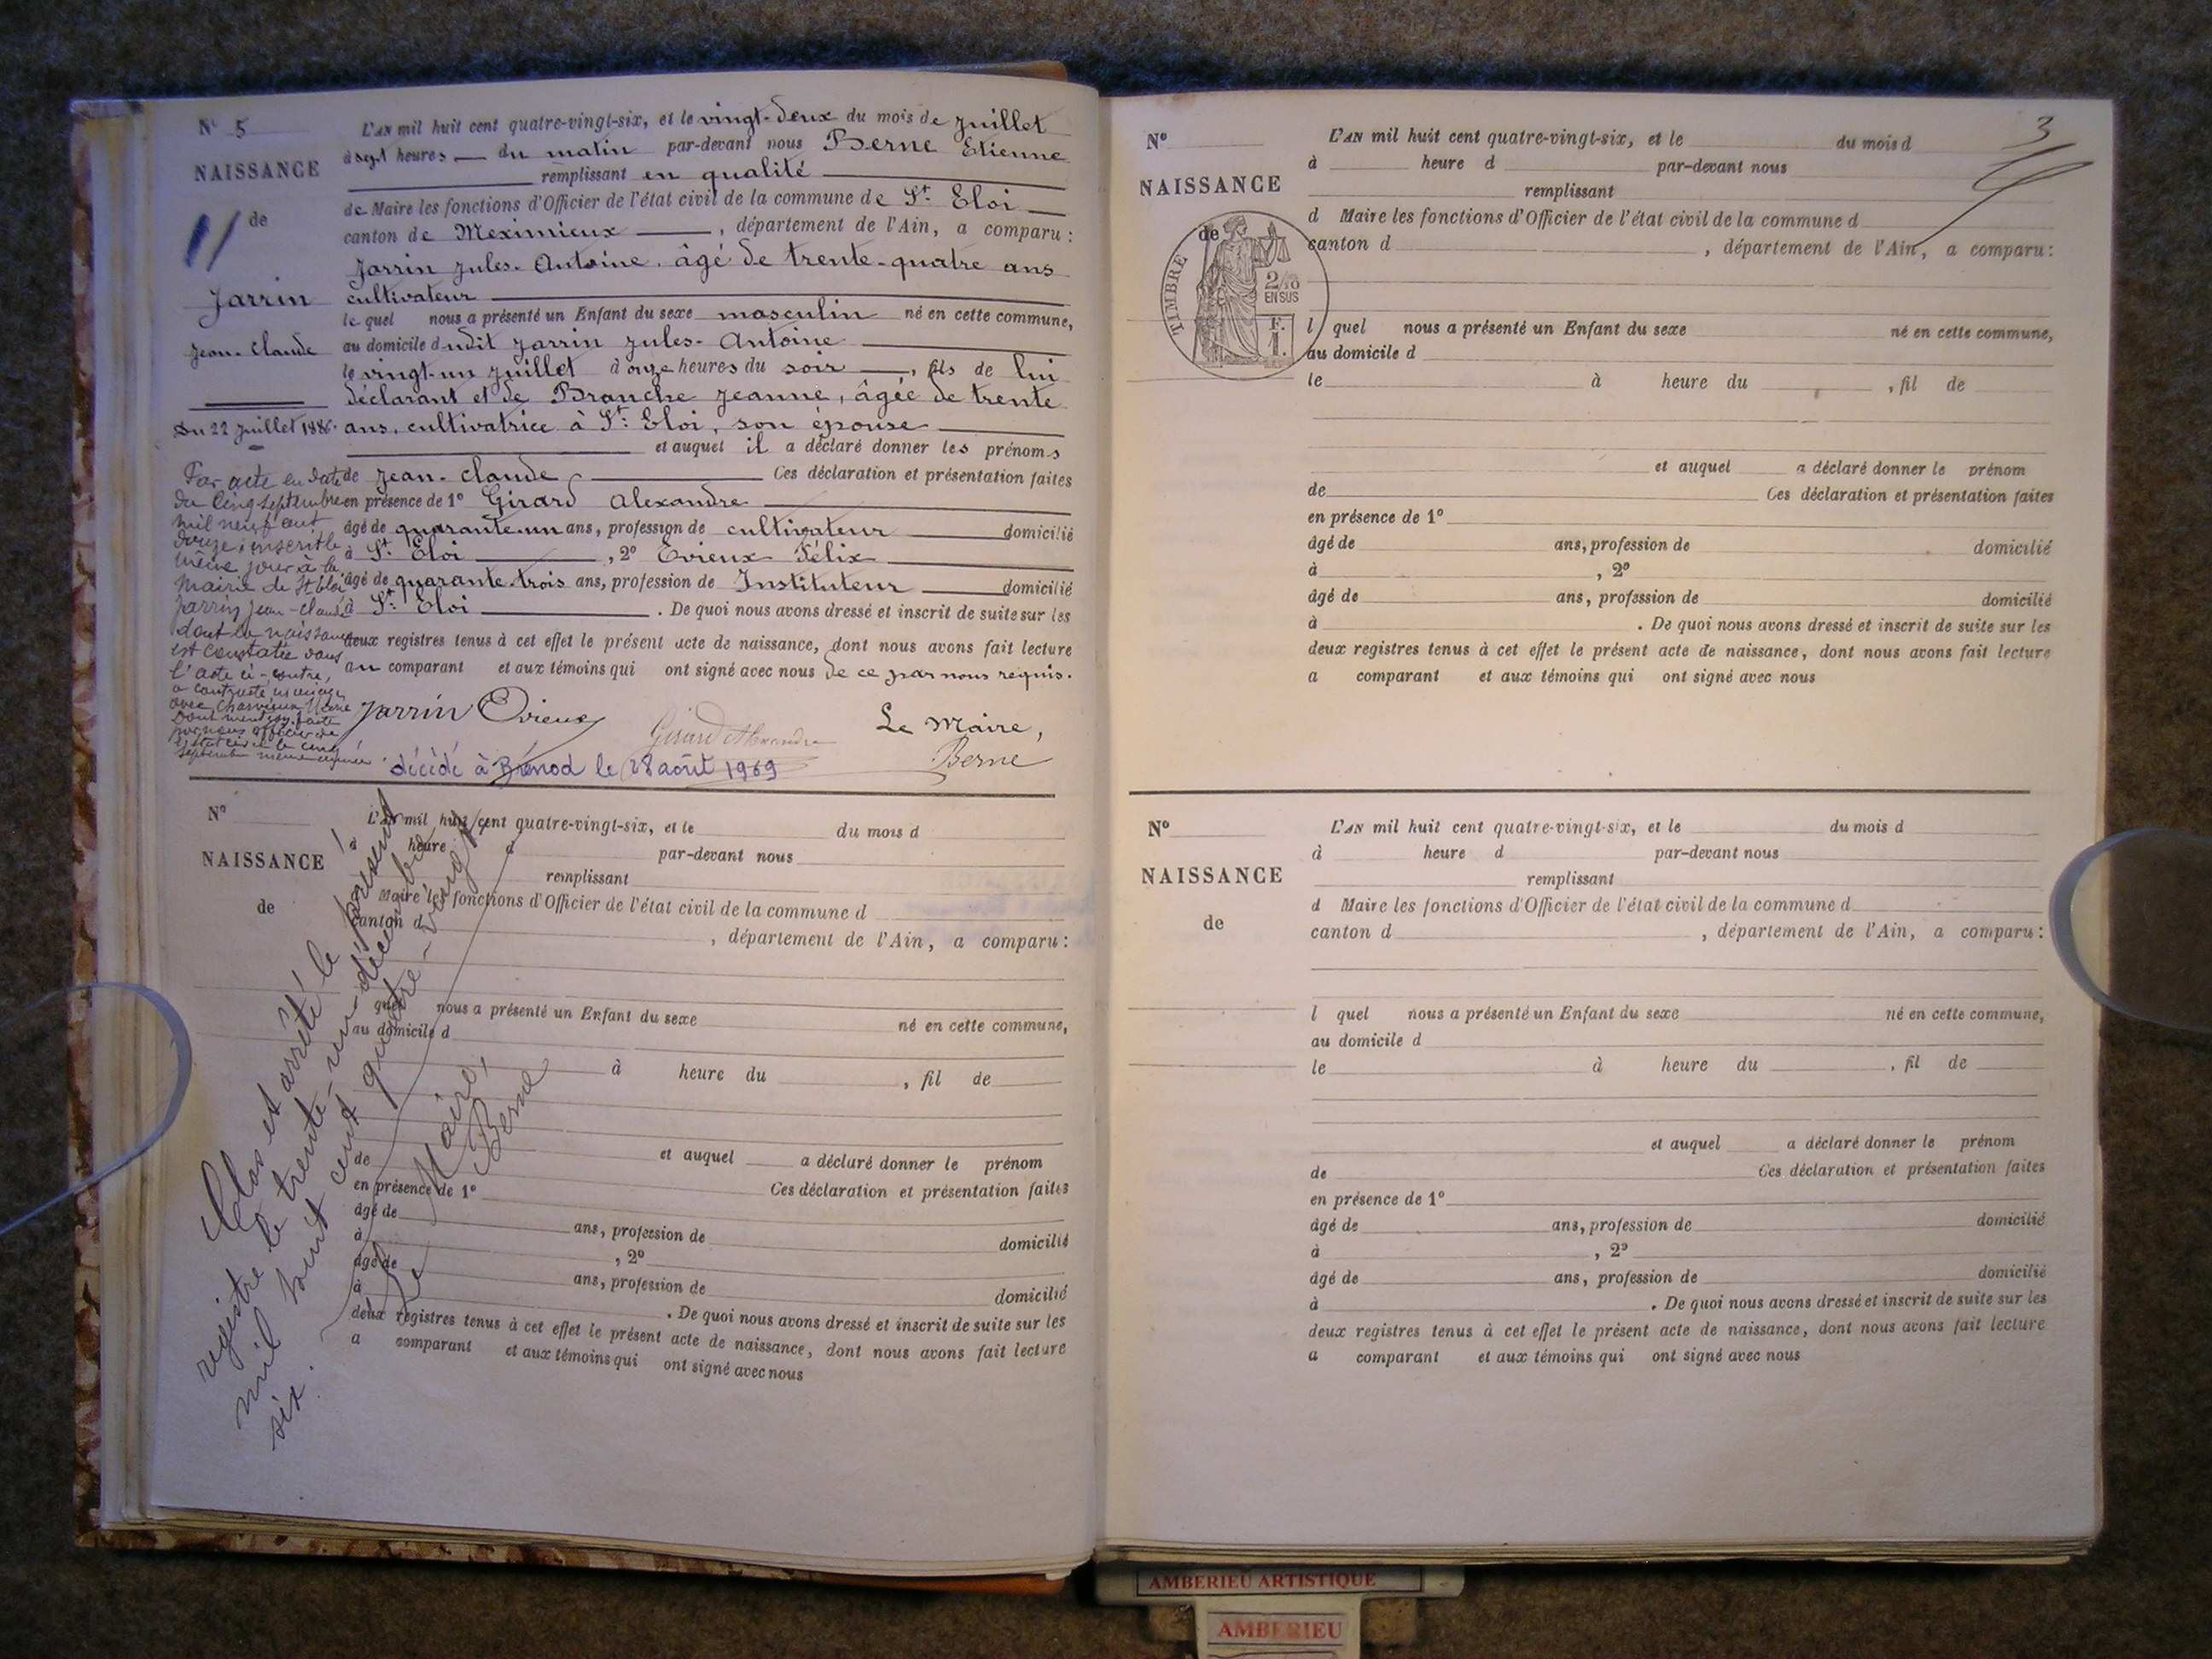 N° 5
NAISSANCE
de
Jarrin
Jean-Claude
Du 22 Juillet 1886.
L'AN mil huit cent quatre-vingt-six, et le vingt-deux du mois de Juillet
à sept heures du matin par-devant nous Berne Etienne
remplissant en qualité
de Maire les fonctions d'Officier de l'état civil de la commune de St Eloi
canton de Meximieux, département de l'Ain, a comparu :
Jarrin Jules-Antoine, âgé de trente-quatre ans
cultivateur
le quel nous a présenté un Enfant du sexe masculin né en cette commune,
au domicile dudit Jarrin Jules-Antoine
le vingt-un Juillet à onze heures du soir, fils de lui
déclarant et de Branche Jeanne, âgée de trente
ans, cultivatrice à St Eloi, son épouse
et auquel il a déclaré donner les prénoms
de Jean-Claude Ces déclaration et présentation faites
en présence de 1° Girard Alexandre
âgé de quarante-un ans, profession de cultivateur domicilié
à St Eloi, 2° Evieux Félix
âgé de quarante-trois ans, profession de Instituteur domicilié
à St Eloi. De quoi nous avons dressé et inscrit de suite sur les
deux registres tenus à cet effet le présent acte de naissance, dont nous avons fait lecture
au comparant et aux témoins qui ont signé avec nous de ce par nous requis.
Jarrin Evieux Girard Alexandre Le Maire,
Berne
Par acte en date
du cinq septembre
mil neuf cent
douze, inscrit le
même jour à la
Mairie de St Eloi
Jarrin Jean-Claude
dont la naissance
est constatée dans
l'acte ci-contre,
a contracté mariage
avec Charvieux
Dont mention faite
par nous officier de
l'état civil le cinq
septembre même année
décédé à Brénod le 28 août 1969
N°
NAISSANCE
de
L'AN mil huit cent quatre-vingt-six, et le du mois d
à heure d par-devant nous
remplissant
Maire les fonctions d'Officier de l'état civil de la commune d
canton d , département de l'Ain, a comparu :
quel nous a présenté un Enfant du sexe né en cette commune,
au domicile d
à heure du , fil de
et auquel a déclaré donner le prénom
de Ces déclaration et présentation faites
en présence de 1°
âgé de ans, profession de domicilié
à , 2°
âgé de ans, profession de domicilié
à . De quoi nous avons dressé et inscrit de suite sur les
deux registres tenus à cet effet le présent acte de naissance, dont nous avons fait lecture
a comparant et aux témoins qui ont signé avec nous
Clos et arrêté le présent
registre le trente-un décembre
mil huit cent quatre-vingt
six.
Le Maire,
Berne
3
N°
NAISSANCE
de
TIMBRE
2/10
EN SUS
F.
1.
L'AN mil huit cent quatre-vingt-six, et le du mois d
à heure d par-devant nous
remplissant
d Maire les fonctions d'Officier de l'état civil de la commune d
canton d , département de l'Ain, a comparu :
l quel nous a présenté un Enfant du sexe né en cette commune,
au domicile d
le à heure du , fil de
et auquel a déclaré donner le prénom
de Ces déclaration et présentation faites
en présence de 1°
âgé de ans, profession de domicilié
à , 2°
âgé de ans, profession de domicilié
à . De quoi nous avons dressé et inscrit de suite sur les
deux registres tenus à cet effet le présent acte de naissance, dont nous avons fait lecture
a comparant et aux témoins qui ont signé avec nous
N°
NAISSANCE
de
L'AN mil huit cent quatre-vingt-six, et le du mois d
à heure d par-devant nous
remplissant
d Maire les fonctions d'Officier de l'état civil de la commune d
canton d , département de l'Ain, a comparu :
l quel nous a présenté un Enfant du sexe né en cette commune,
au domicile d
le à heure du , fil de
et auquel a déclaré donner le prénom
de Ces déclaration et présentation faites
en présence de 1°
âgé de ans, profession de domicilié
à , 2°
âgé de ans, profession de domicilié
à . De quoi nous avons dressé et inscrit de suite sur les
deux registres tenus à cet effet le présent acte de naissance, dont nous avons fait lecture
a comparant et aux témoins qui ont signé avec nous
AMBERIEU ARTISTIQUE
AMBERIEU